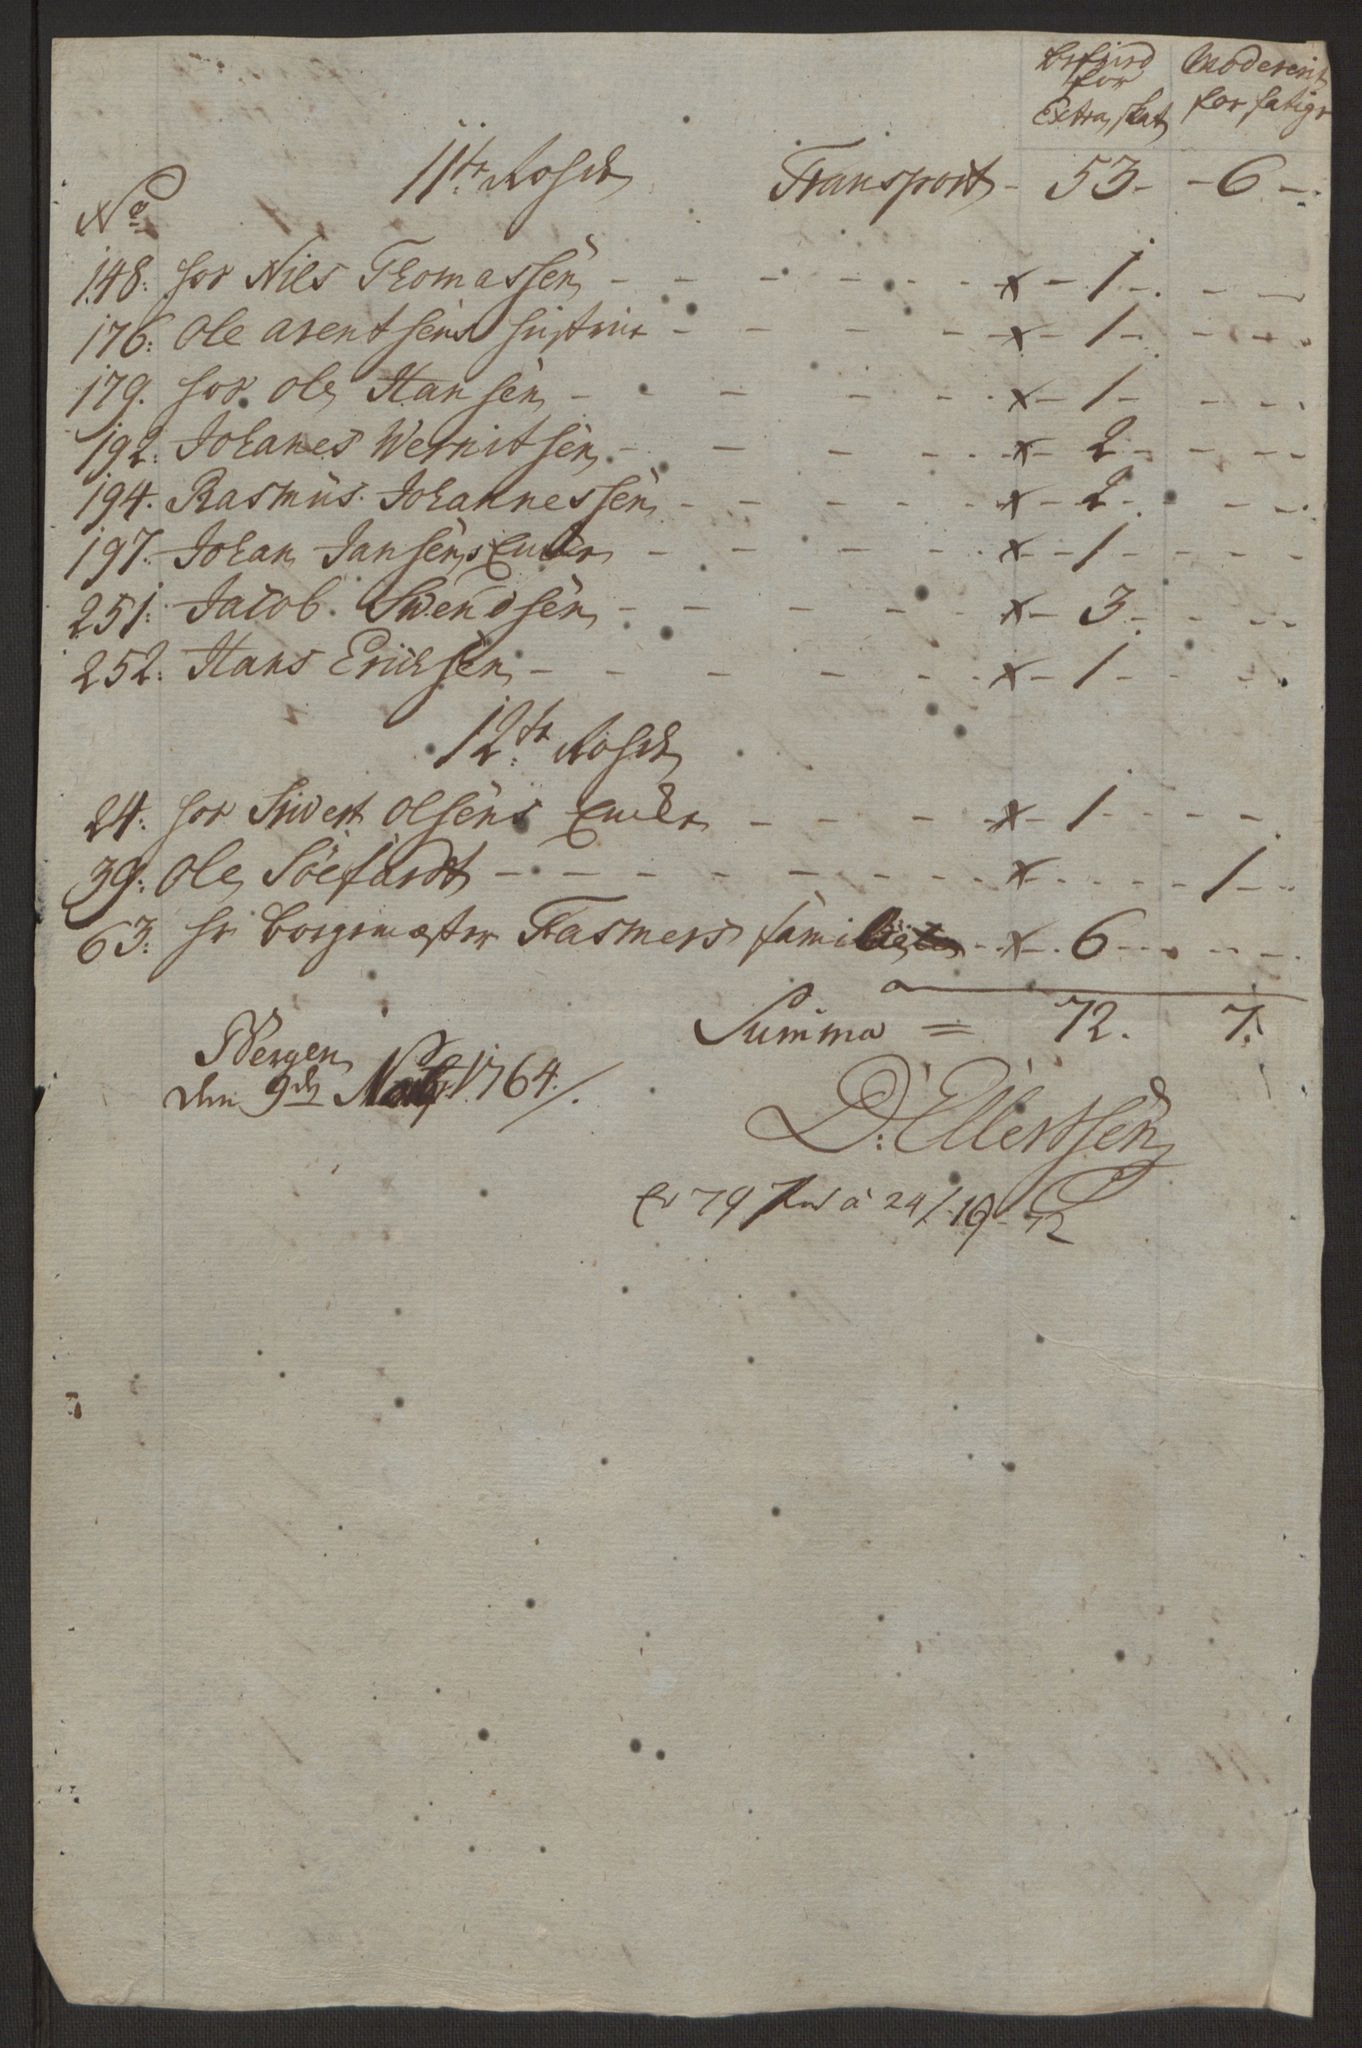 befried Modererit
for for fatige
Extra skat
11te Rohde Transport - 53 - - 6 -
No
148: for Nils Thomassen - - - x - 1 - - -
176: Ole Arentsens Hustrue - - - x - 1 - - -
179. for Ole Hansen - - - x - 1 - - -
192: Johanes Wernitsen - - - x - 2 - - -
194. Rasmus Johannessen - - - x - 2 - - -
197. Johan Jansens Encke - - - x - 1 - - -
251: Jacob Swendsen - - - x - 3 - - -
252: Hans Ericksen - - - x - 1 - - -
12te Rohde
24: for Siwert Olsens Encke - - - x - 1 - - -
39: Ole Söefardt - - - x - - - 1 - -
63: Hr Borgemester Fasmers familie - - x - 6 - - -
Summa = 72. 7.
Bergen
den 9de 1764./.
D: Ellertsen
Er 79 à 24 /- 19 - 72